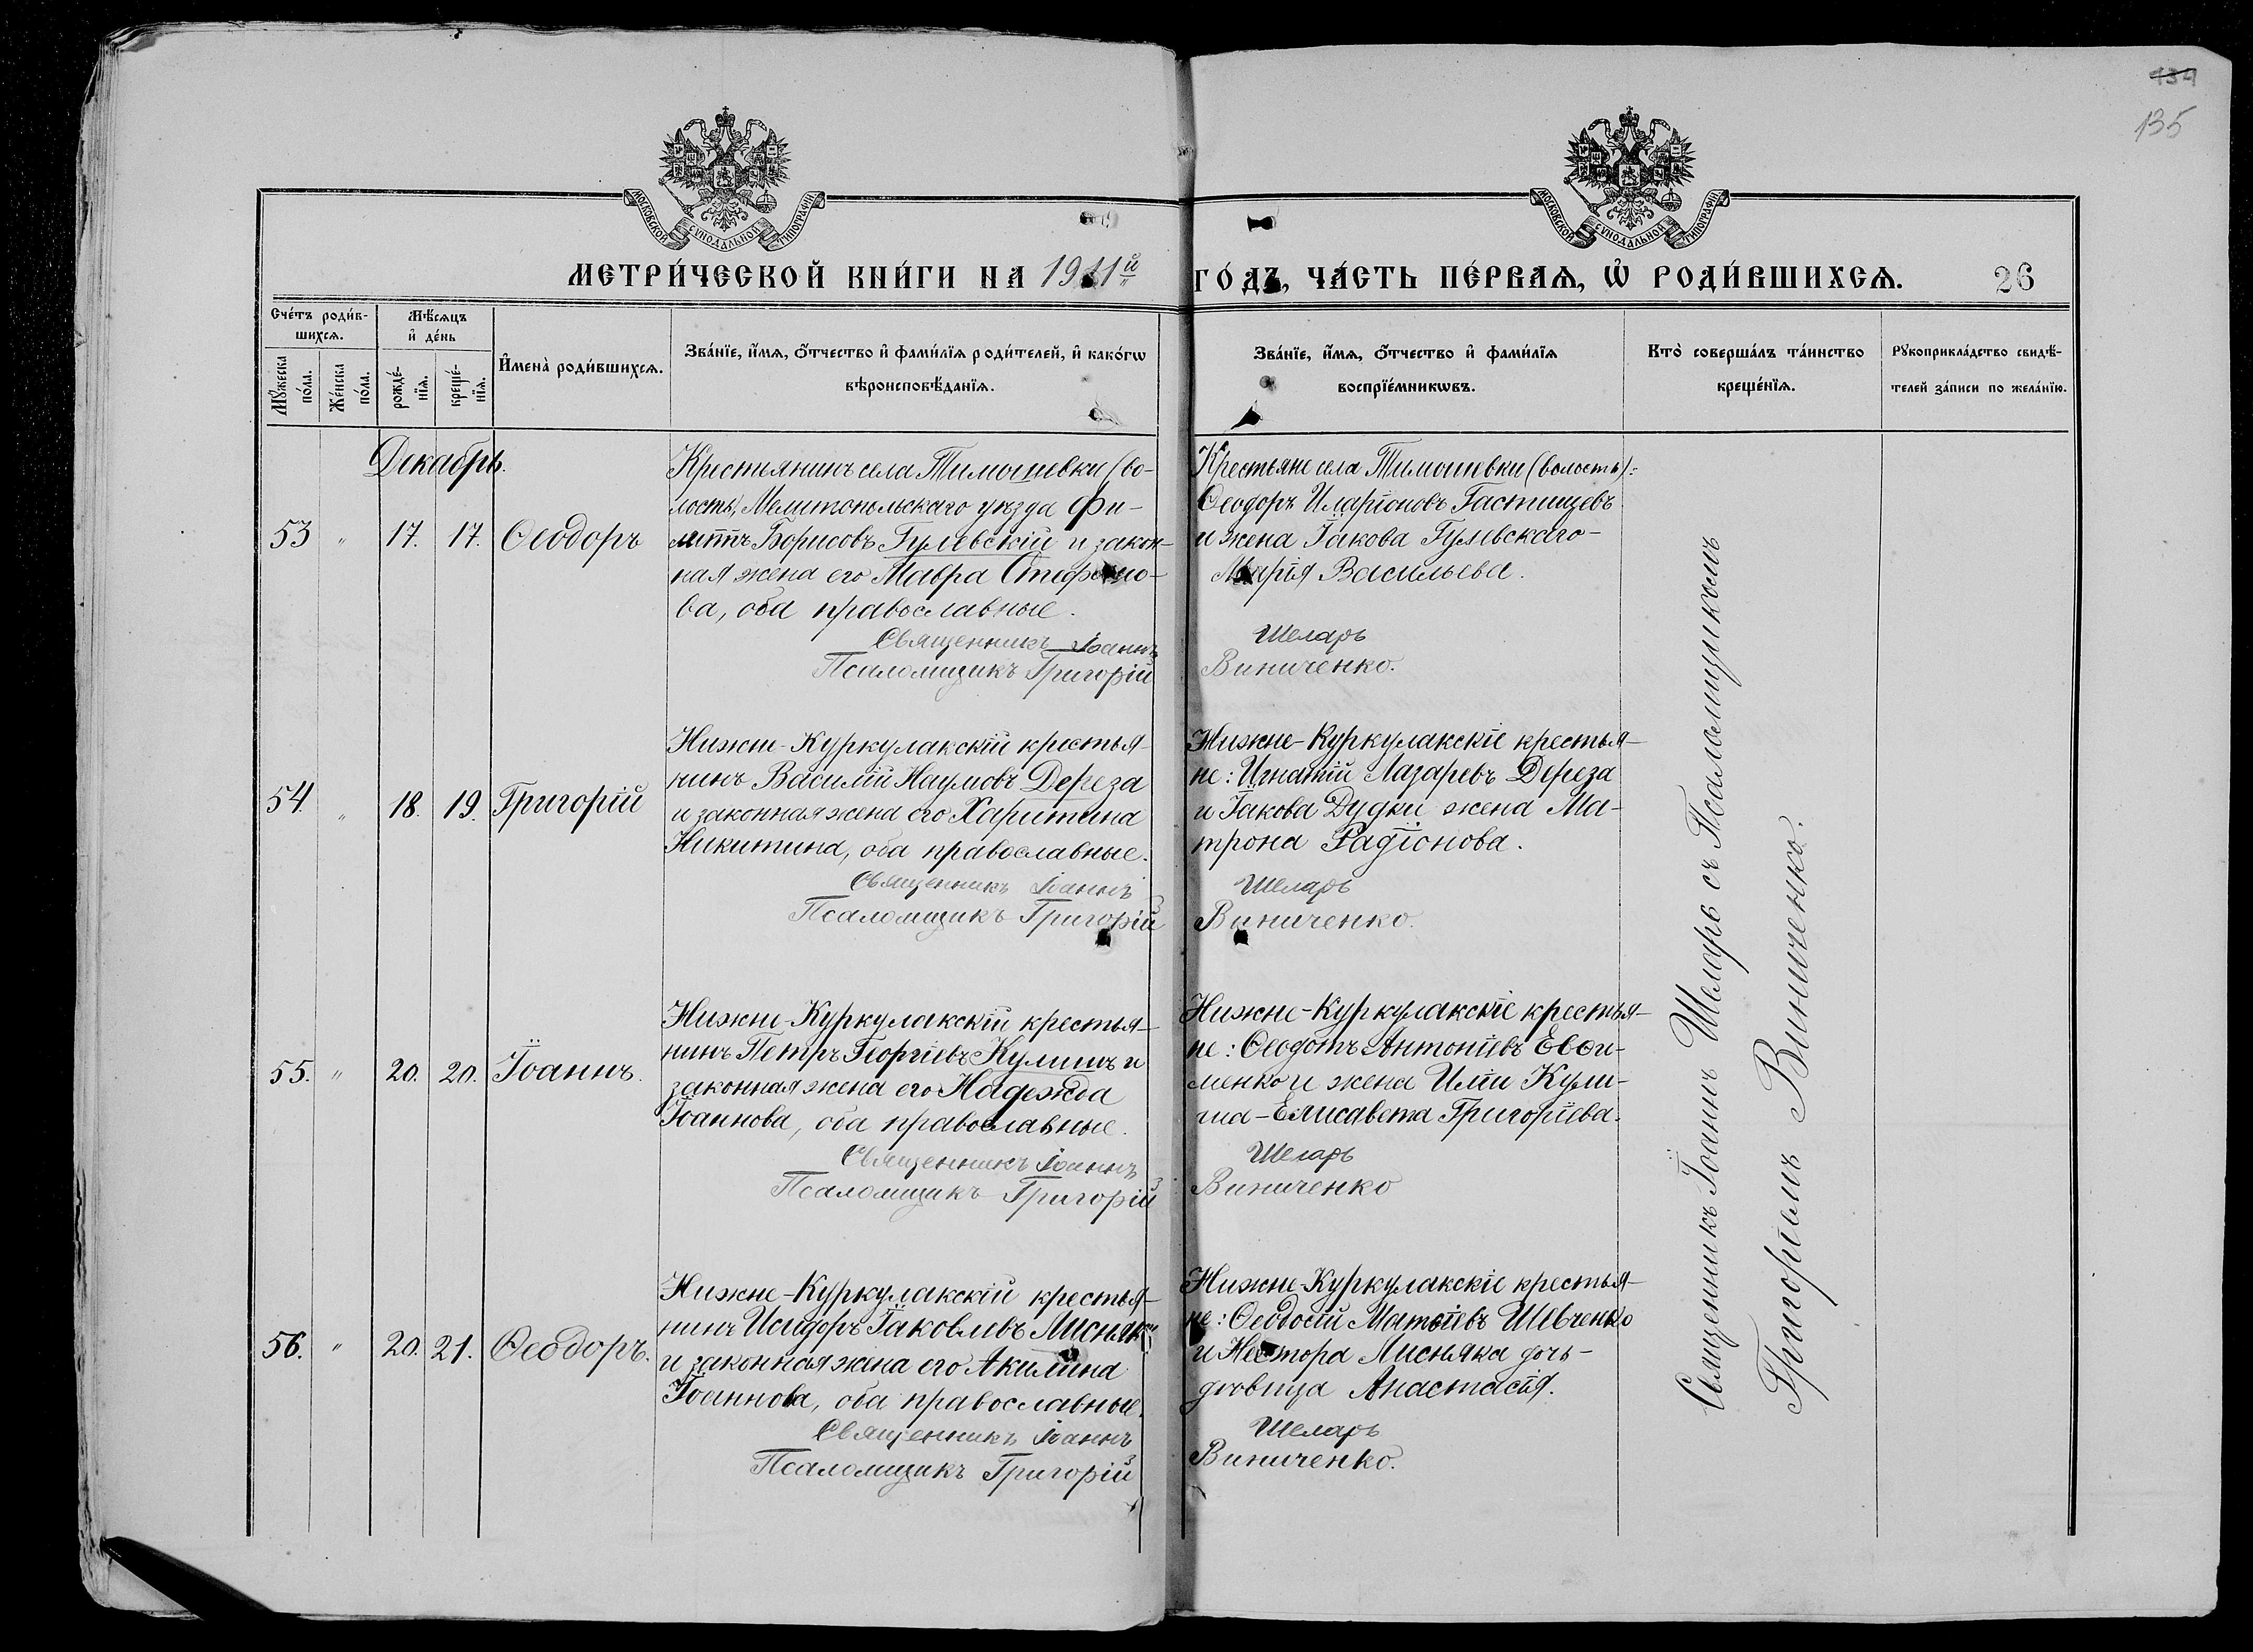 134
135
МОСКОВСКОЙ СѴНОДАЛЬНОЙ ТИПОГРАФІИ
МОСКОВСКОЙ СѴНОДАЛЬНОЙ ТИПОГРАФІИ
МЕТРИ́ЧЕСКОЙ КНИ́ГИ НА 1911й ГО́ДЪ, ЧА́СТЬ ПЕ́РВАѦ, Ѡ҆ РОДИ́ВШИХСѦ. 26
Сче́тъ роди́в-
шихсѧ.
Мꙋ́жеска по́ла.
Же́нска по́ла.
Мѣ́сѧцъ
и҆ де́нь
рожде́-
нїѧ.
креще́-
нїѧ.
И҆мена̀ роди́вшихсѧ.
Зва́нїе, и҆́мѧ, ѻ҆́тчество и҆ фами́лїѧ роди́телей, и҆ како́гѡ
вѣроисповѣ́данїѧ.
Зва́нїе, и҆́мѧ, ѻ҆́тчество и҆ фами́лїѧ
воспрїе́мникѡвъ.
Кто̀ соверша́лъ та́инство
креще́нїѧ.
Рꙋкоприкла́дство свидѣ́-
телей за́писи по жела́нїю.
Декабрь.
53 " 17. 17. Ѳеодоръ
Крестьянинъ села Тимошевки (во-
лость) Мелитопольскаго уѣзда Фи-
липпъ Борисовъ Гулевскій и закон-
ная жена его Мавра Стефано-
ва, оба православные.
Священникъ Іоаннъ
Псаломщикъ Григорій
Крестьяне села Тимошевки (волость):
Ѳеодоръ Иларіоновъ Гастищевъ
и жена Іакова Гулевскаго-
Марія Васильева.
Шеларь
Виниченко.
54. " 18. 19. Григорій
Нижне-Куркулакскій крестья-
нинъ Василій Наумовъ Дереза
и законная жена его Харитина
Никитина, оба православные.
Священникъ Іоаннъ
Псаломщикъ Григорій
Нижне-Куркулакскіе крестья-
не: Игнатій Лазаревъ Дереза
и Іакова Дудки жена Ма-
трона Радіонова.
Шеларь
Виниченко.
55. " 20. 20. Іоаннъ.
Нижне-Куркулакскій крестья-
нинъ Петръ Георгіевъ Кулишъ и
законная жена его Надежда
Іоаннова, оба православные.
Священникъ Іоаннъ
Псаломщикъ Григорій
Нижне-Куркулакскіе крестья-
не: Ѳеодотъ Антоніевъ Евѳи-
менко и жена Иліи Кули-
ша-Елисавета Григоріева.
Шеларь
Виниченко
56. " 20. 21. Ѳеодоръ.
Нижне-Куркулакскій крестья-
нинъ Исидоръ Іаковлевъ Миснякъ
и законная жена его Акилина
Іоаннова, оба православные.
Священникъ Іоаннъ
Псаломщикъ Григорій
Нижне-Куркулакскіе крестья-
не: Ѳеодосій Матѳіевъ Шевченко
и Нестора Мисняка дочь-
дѣвица Анастасія.
Шеларь
Виниченко.
Священникъ Іоаннъ Шеларь съ Псаломщикомъ
Григоріемъ Виниченко.